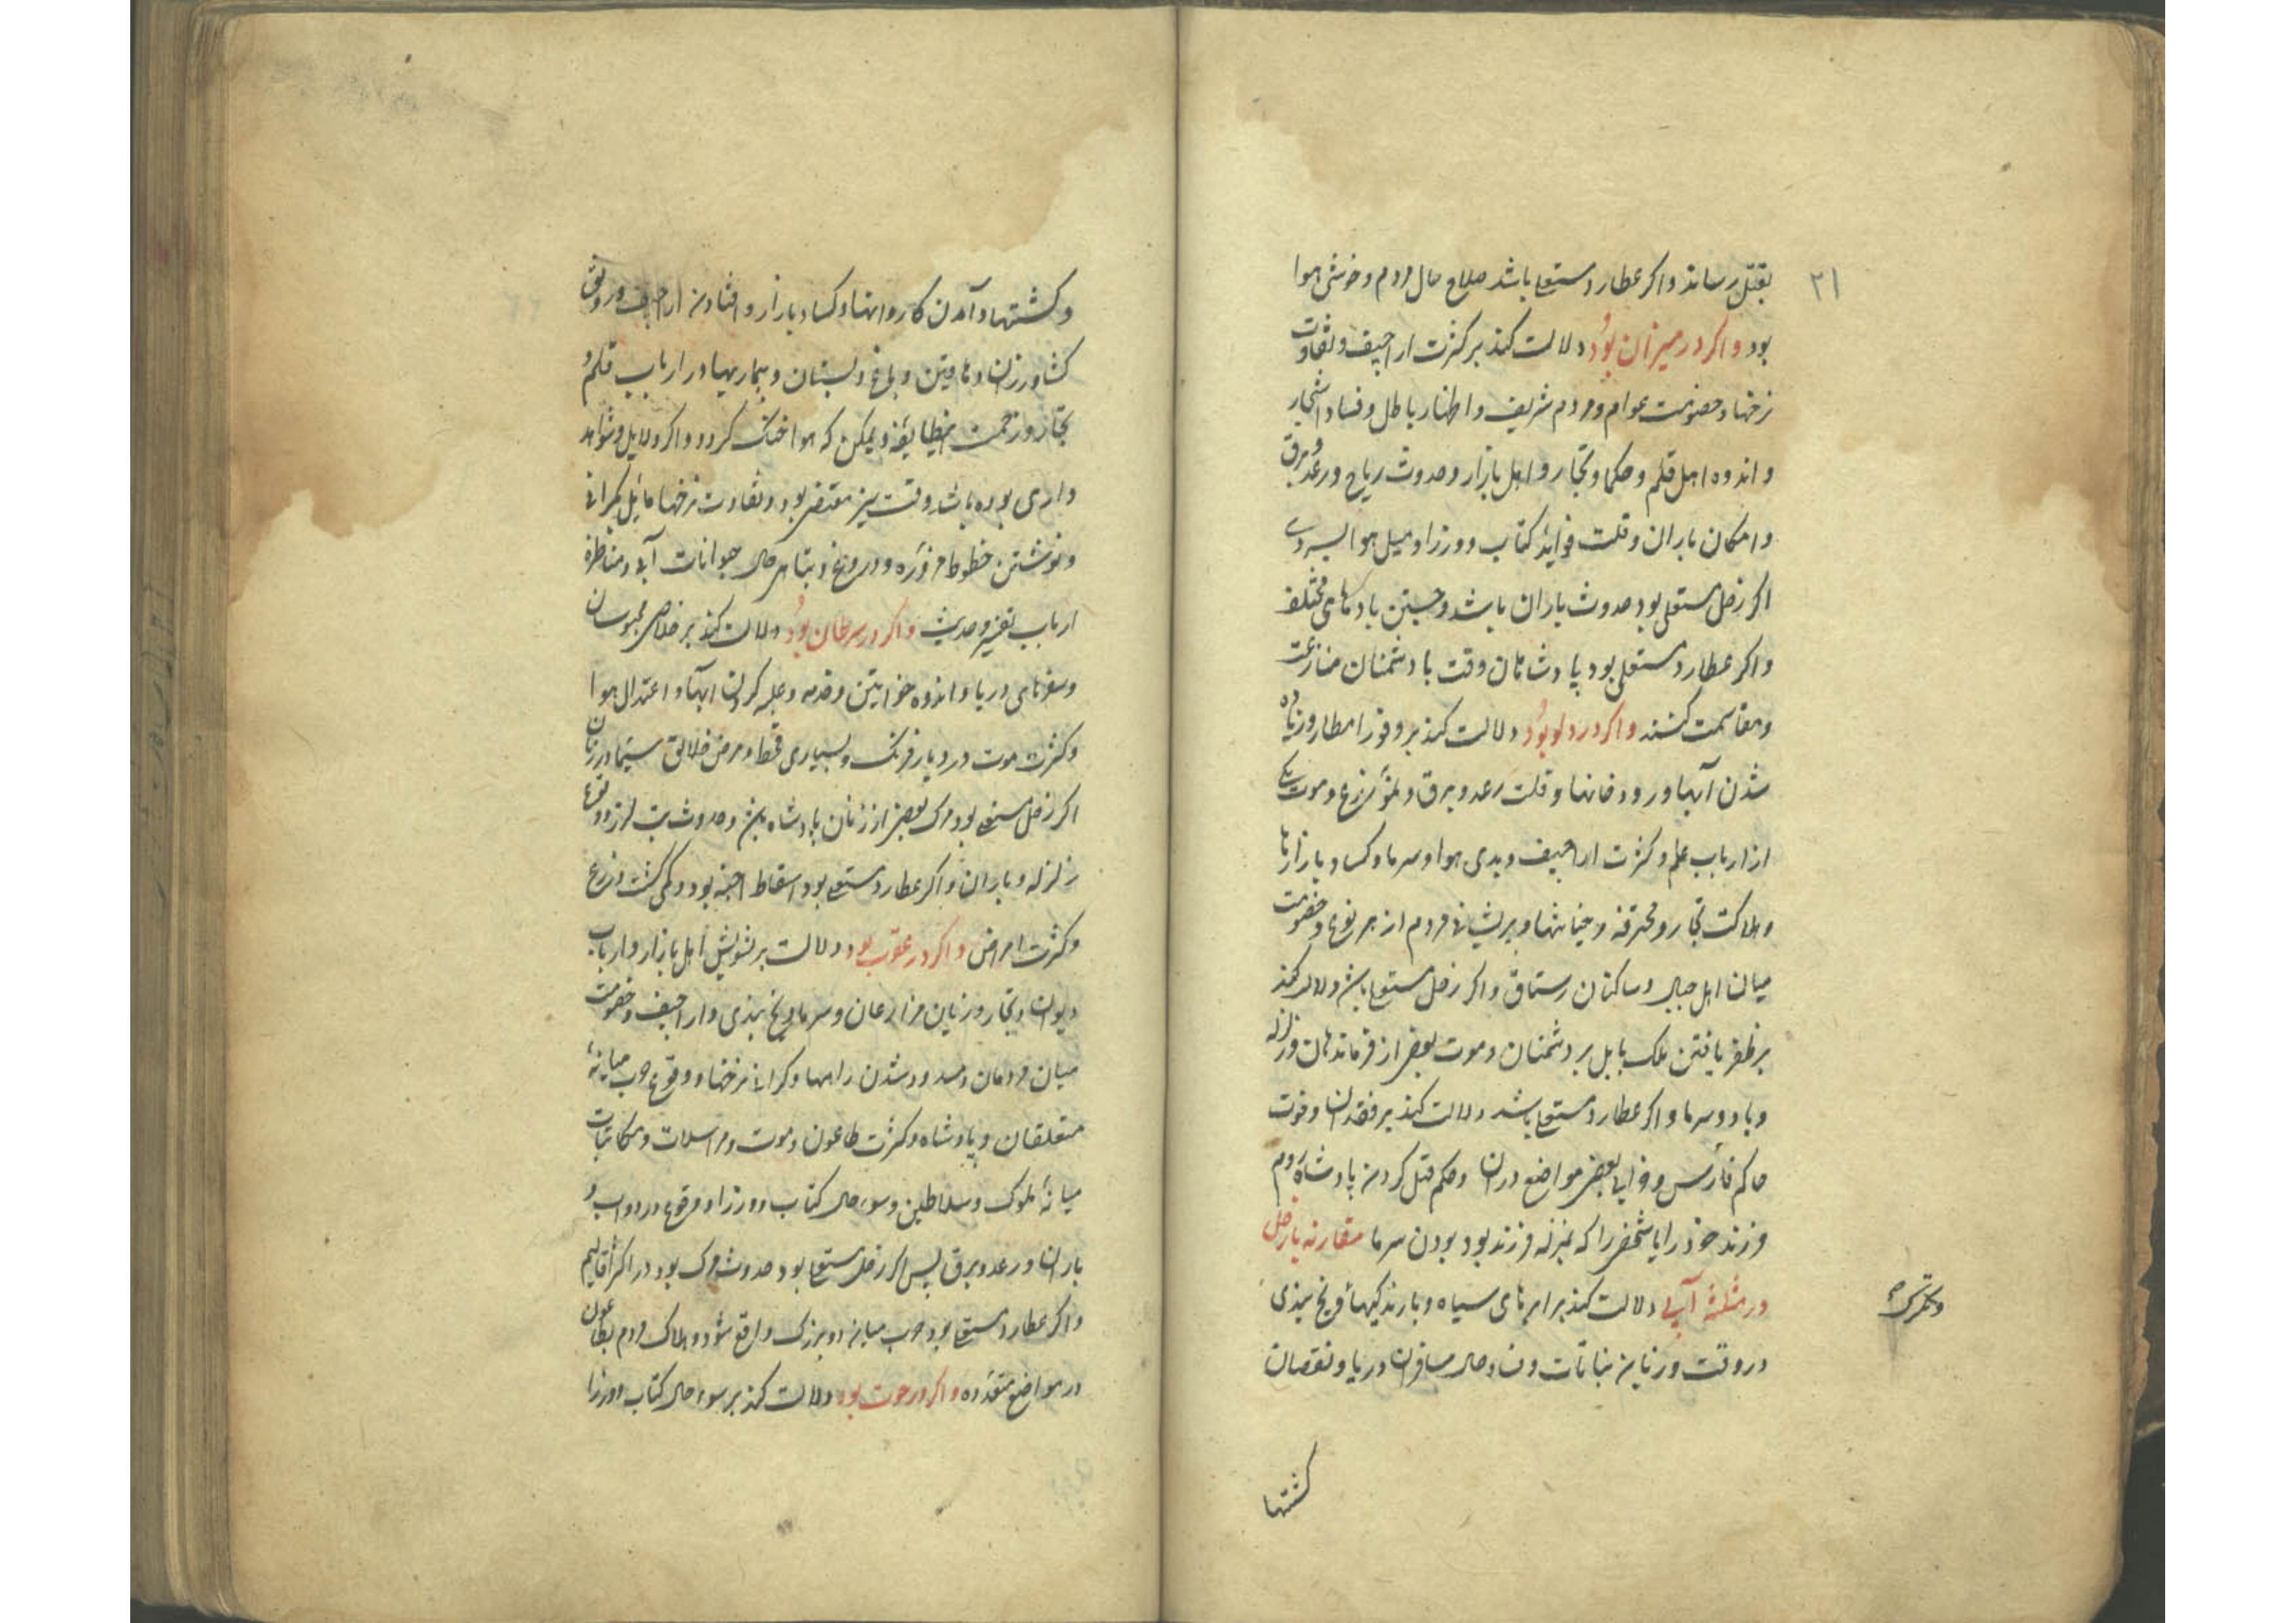 ۳۱
بقتل رساند و اکر عطارد مستعلی باشد صلاح حال مردم و خوشی هوا
بود و اکر در میزان بود دلالت کند بر کثرت اراجیف و تفاوت
نرخها و خصومت عوام و مردم شریف و اظهار باطل و فساد اشجار
و اندوه اهل قلم و حکما و تجار و اهل بازار و حدوث ریاح و رعد و برق
و امکان باران و قلت فواید کتاب و وزرا و میل هوا بسردی
اکر زحل مستعلی بود حدوث باران باشد و جستن بادهای مختلف
و اکر عطارد مستعلی بود پادشاهان وقت با دشمنان منازعت
و مقاسمت کنند و اکر در دلو بود دلالت کند بر وفور امطار و زیاده
شدن آبها و رودخانها و قلت رعد و برق و نمو زرع و موت یکی
از ارباب علم و کثرت اراجیف و بدی هوا و سرما و کساد بازارها
و هلاکت تجار و محترفه و خیانتها و پریشانی مردم از هر نوع و خصومت
میان اهل جبال و ساکنان رستاق و اکر زحل مستعلی باشد دلالت کند
بر ظفر یافتن ملک بابل بر دشمنان و موت بعضی از فرماندهان و زلزله
و باد و سرما و اکر عطارد مستعلی باشد دلالت کند بر فقدان و فوت
حاکم فارس و خرابی بعضی مواضع دران و حکم قتل کردن پادشاه روم
فرزند خود را یا شخصی را که بمنزله فرزند بود بودن سرما مقارنه با زحل
در مثلثهٔ آبی دلالت کند بر ابرهای سیاه و بارندکیها و یخ بندی
در وقت و زیان نباتات و فساد حال مسافران دریا و نقصان
کشتیها
و کشتیها و آمدن کاروانها و کساد بازار و افتادن اراجیف و رونق
کشاورزان و دهاقین و باغ و بستان و بیماریها در ارباب قلم و
تجار و زحمت این طایفه و یمکن که هوا خنک کردد و اکر دلایل و شواهد
واردی بوده باشد وقت نیز مقتضی بود و تفاوت نرخها مایل بکرانی
و نوشتن خطوط مزوره و دروغ و تباهی حال حیوانات آبی و مناظره
ارباب تفسیر و حدیث و اکر در سرطان بود دلالت کند بر خلاصی محبوسان
و سفرهای دریا و اندوه خواتین و خدمه و غلبه کردن آبها و اعتدال هوا
و کثرت موت در دیار فرنک و بسیاری قحط و مرض خلایق سیما در زنان
اکر زحل مستعلی بود مرک بعضی از زنان پادشاه باشد و حدوث تب لرزه و وقوع
زلزله و باران و اکر عطارد مستعلی بود اسقاط اجنه بود و کمی کشت و زرع
و کثرت امراض و اکر در عقرب بود دلالت بر تشویش اهل بازار و ارباب
دیوان و تجار و زیان مزارعان و سرما و یخ بندی و اراجیف و خصومت
میان مردمان و مسدود شدن راهها و کرانی نرخها و وقوع حرب میانهٔ
متعلقان و پادشاه و کثرت طاعون و موت و مراسلات و مکاتبات
میانهٔ ملوک و سلاطین و سوء حال کتاب و وزرا و وقوع درد دواب و
باران و رعد و برق پس اکر زحل مستعلی بود حدوث مرک بود در اکثر اقالیم
و اکر عطارد مستعلی بود حرب میانه دو بزرک واقع شود و هلاک مردم بطاعون
در مواضع متعدده و اکر در حوت بود دلالت کند بر سوء حال کتاب و وزرا